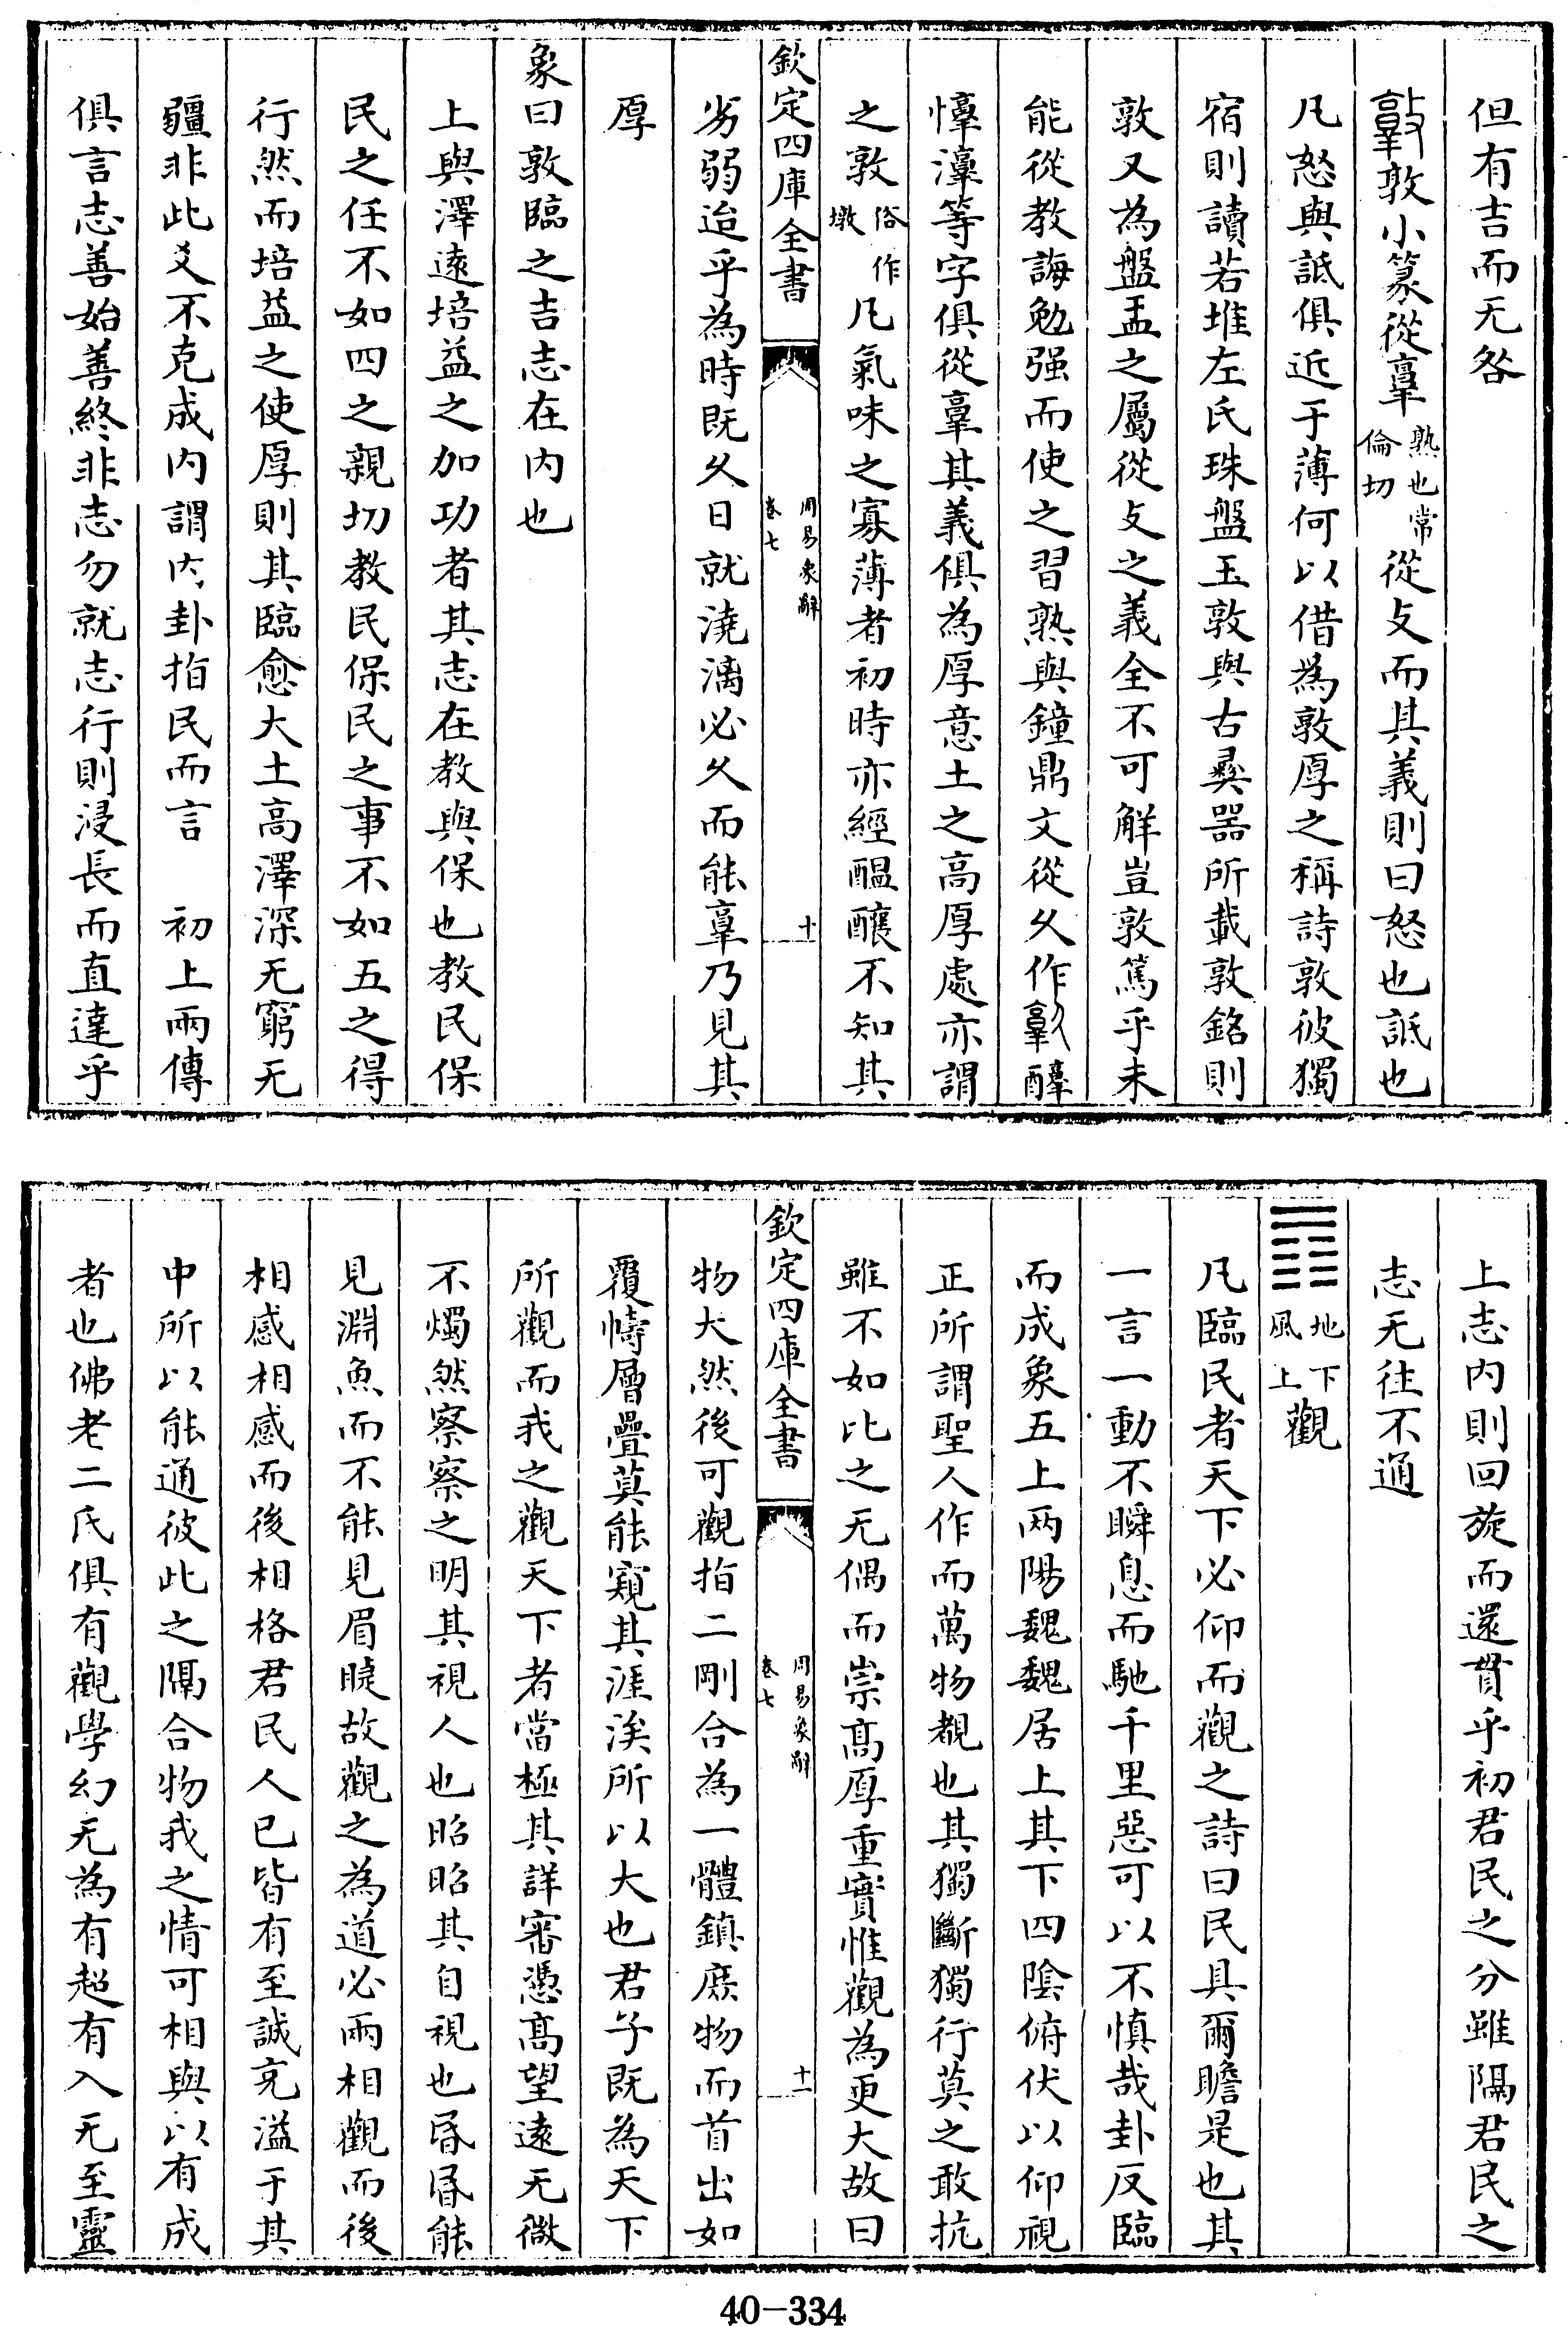 但有吉而无咎
敦小篆從𦎫熟也常倫切從攴而其義則曰怒也詆也
凡怒與詆俱近于薄何以借為敦厚之稱詩敦彼獨
宿則讀若堆左氏珠盤玉敦與古彞器所載敦銘則
敦又為盤盂之屬從攴之義全不可解豈敦篤乎未
能從教誨勉强而使之習熟與鐘鼎文從攵作醇
憞潡等字俱從𦎫其義俱為厚意土之高厚處亦謂
之敦俗作墩凡氣味之寡薄者初時亦經醖釀不知其
欽定四庫全書
周易象辭
卷七
十
劣弱迨乎為時既久日就澆漓必久而能𦎫乃見其
厚
象曰敦臨之吉志在内也
上與澤逺培益之加功者其志在教與保也教民保
民之任不如四之親切教民保民之事不如五之得
行然而培益之使厚則其臨愈大土高澤深无窮无
疆非此爻不克成内謂内卦指民而言　初上兩傳
俱言志善始善終非志勿就志行則浸長而直達乎
上志内則回旋而還貫乎初君民之分雖隔君民之
志无往不通
䷓地下風上觀
凡臨民者天下必仰而觀之詩曰民具爾瞻是也其
一言一動不瞬息而馳千里惡可以不慎哉卦反臨
而成象五上两陽魏魏居上其下四陰俯伏以仰視
正所謂聖人作而萬物覩也其獨斷獨行莫之敢抗
雖不如比之无偶而崇髙厚重實惟觀為更大故曰
欽定四庫全書
周易象辭
卷七
十一
物大然後可觀指二剛合為一體鎮庶物而首出如
覆幬層疊莫能窺其涯涘所以大也君子既為天下
所觀而我之觀天下者當極其詳審憑髙望逺无微
不燭然察察之明其視人也昭昭其自視也昏昏能
見淵魚而不能見眉睫故觀之為道必兩相觀而後
相感相感而後相格君民人已皆有至誠充溢于其
中所以能通彼此之隔合物我之情可相與以有成
者也佛老二氏俱有觀學幻无為有超有入无至靈
40-334